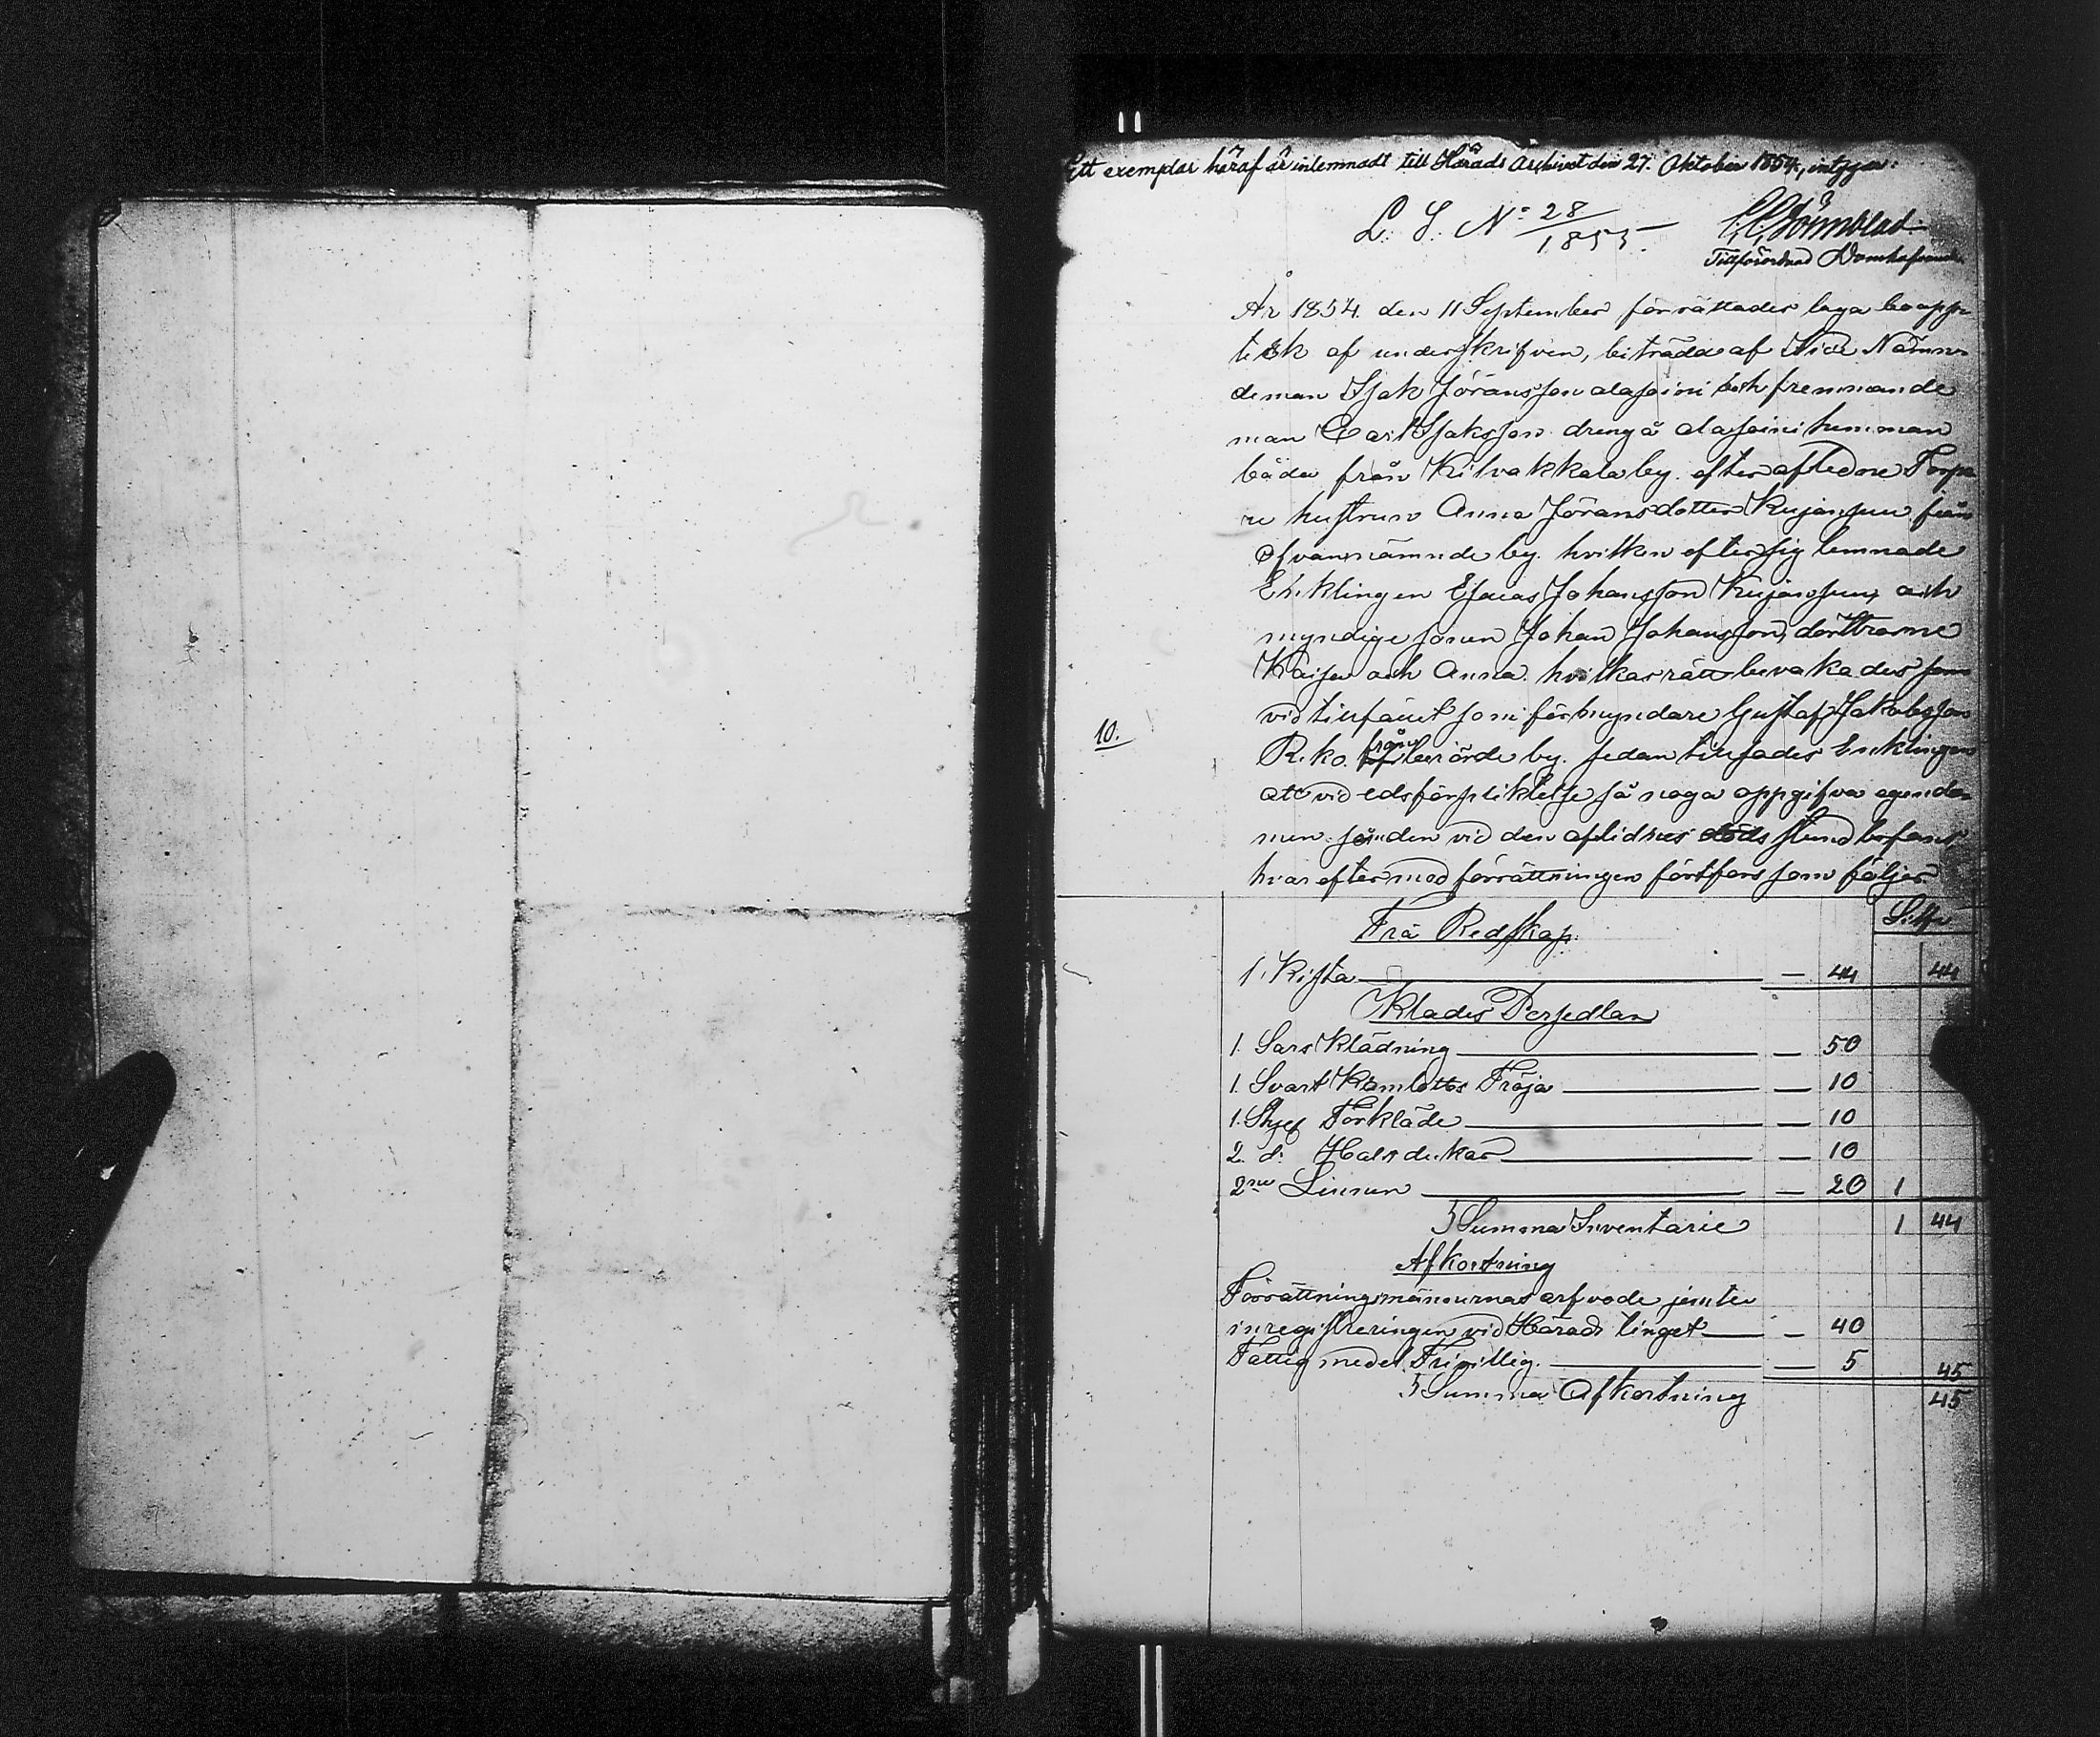 Ett exemplar häraf är inlemnadt till Härads Archivet den 27. Oktober 1854, intygar:
L. S. No 28/1855.
Tillförordnad Domhafvande
År 1854 den 11 September förrättades laga boupp
teck af underskrifven, biträdd af Vice Nämn
deman Isak Jöransson alasoini och fremmande
man Carl Isaksson dreng å alasoini hemman
båda från Kilvakkala by. efter aflidne Torpa
re hustrun Anna Jöransdotter Kujansuu från
ofvannämnde by. hvilken efter sig lemnade
Enklingen Esaias Johansson Kujansuu, och
myndige sonen Johan Johansson, döttrarne
Kaisa och Anna. hvilkas rätt bevakades som
vid tillfället som förmyndare Gustaf Jakobsson
10.
R.ko. från berörde by. sedan tillsades Enklingen
att vid edsförpliktelse så noga oppgifva egendo
men som den vid den aflidnes döds stund befans
hvarefter med förrättningen fortfors som följer
Silfver
Trä Redskap.
1. Kista — 44 44
Klädes Persedlar
1. Sars Klädning — 50
1. Svart Kamlotts Tröja — 10
1. Stycf Förkläde — 10
2. d: Halsdukar — 10
2ne Linnen — 20 1
Summa Inventarie 1 44
Afkortning
Förrättningsmännernas arfvode jemte
inregistreringen vid Härads tinget — 40
Fattig medel Frivillig. — 5 45
Summa Afkortning 45